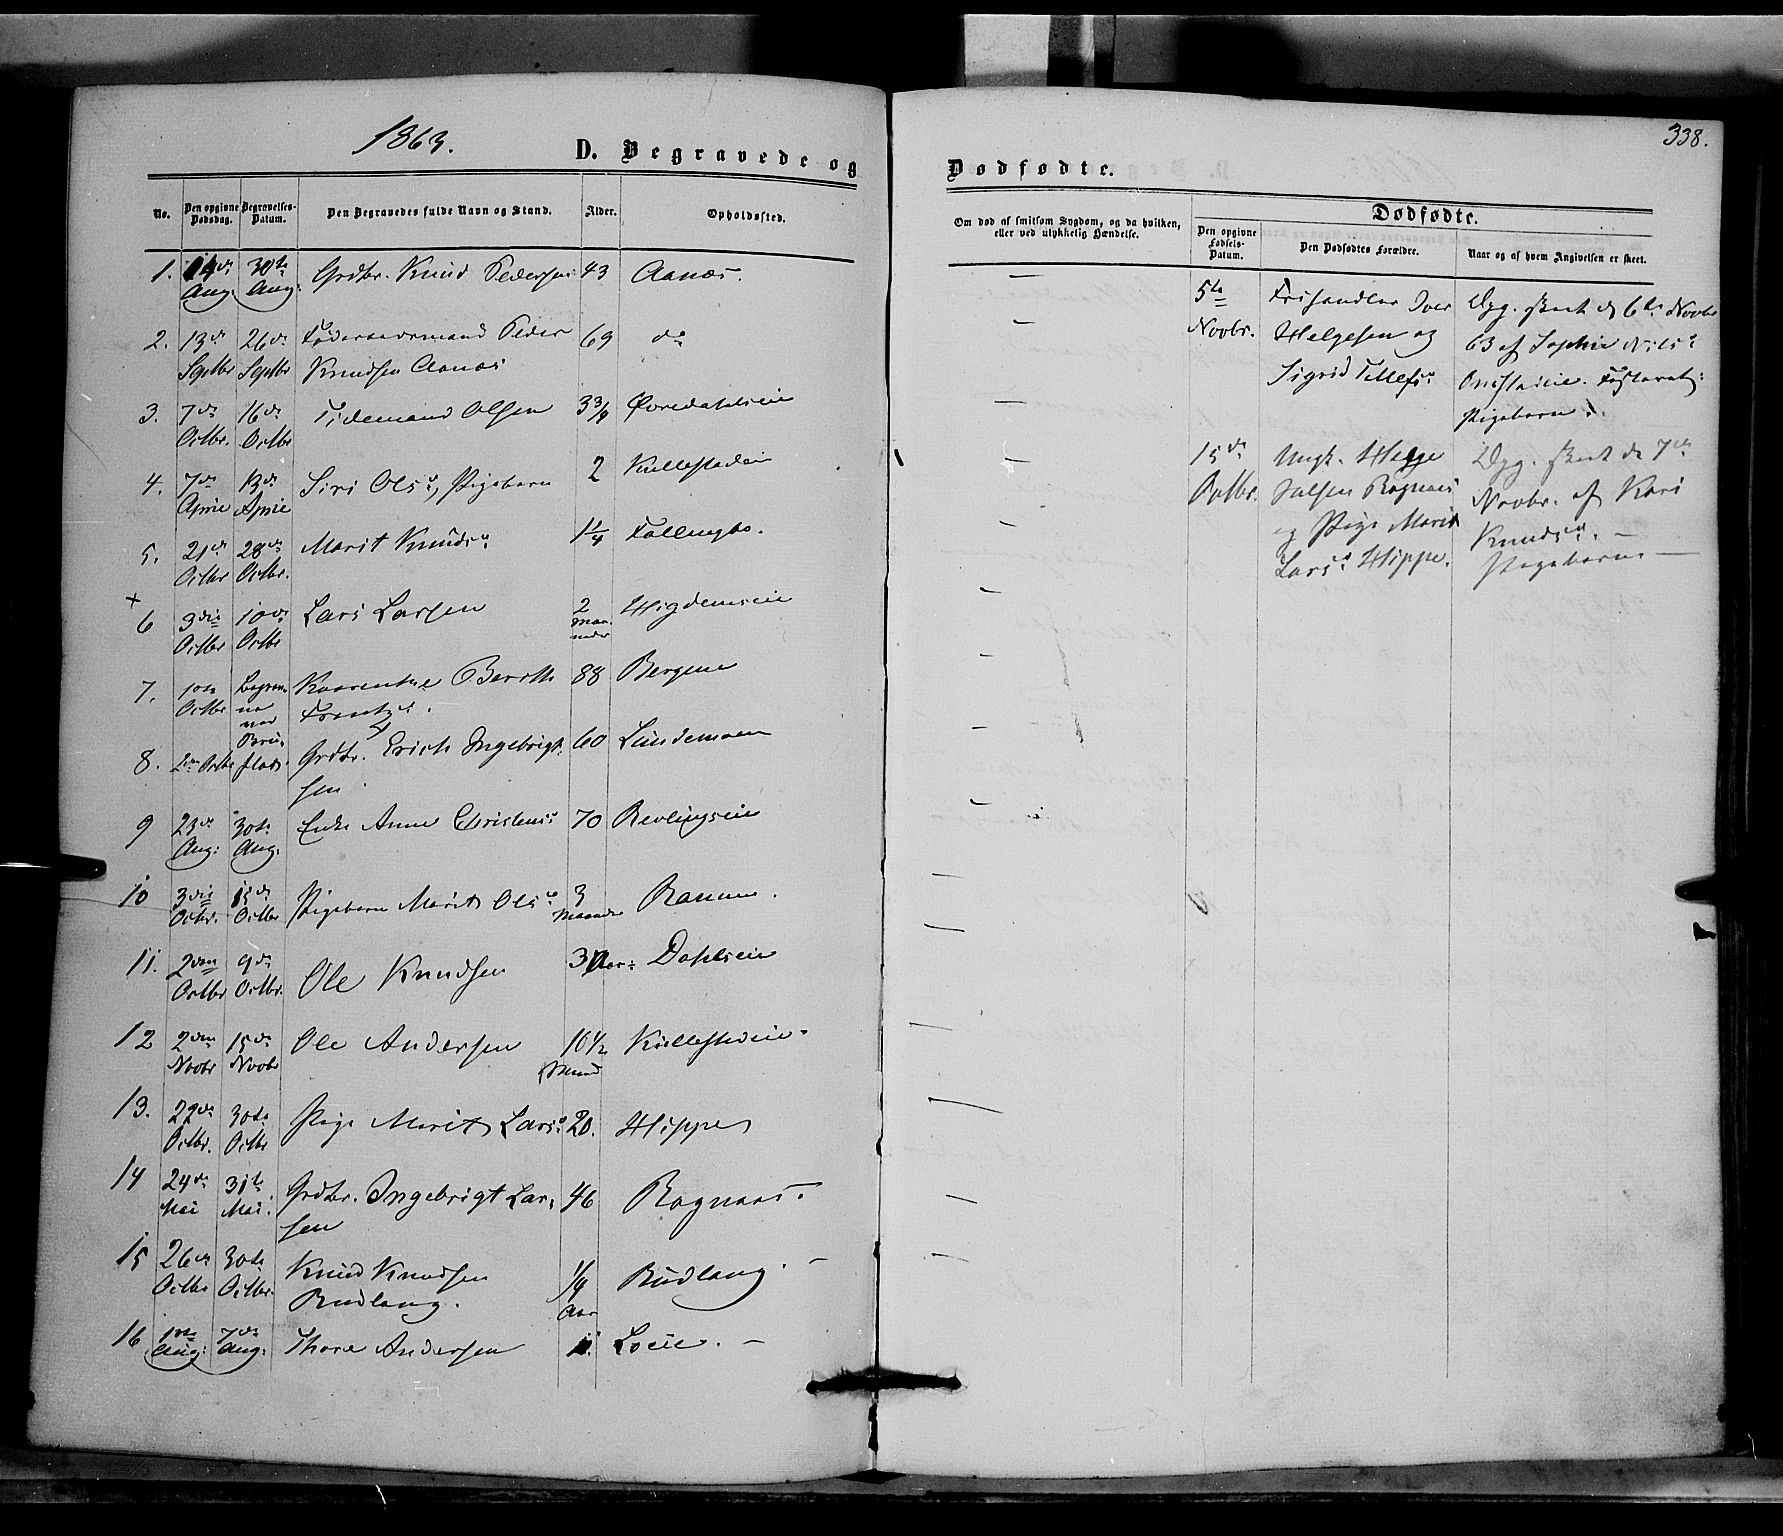 1863.
D. Begravede og
No.
Den opgivne Dødsdag.
Begravelses-Datum.
Den Begravedes fulde Navn og Stand.
Alder.
Opholdssted.
1. 14de Aug: 30te Aug: Grdbr. Knud Pedersen 43 Aanæs.
2. 13de Septbr 26de Septbr Føderaadsmand Peder 69 do
Knudsen Aanæs
3. 7de Octbr. 16de Octbr Tidemand Olsen 3 3/4
4. 7de April 13de April Siri Olsd:, Pigebarn 2
5. 21de Octbr 28de Octbr. Marit Knudsd: 1 1/4
+
6 3die Octbr 10de Octbr Lars Larsen 2 Maaneder
7. 1ste Octbr 88 Bergene
8. 2den Octbr Grdbr. Erich Ingebrigt- 60 Lundemoen
sen
9 23de Aug: 30te Aug: Enke Anne Christensd: 70
10 3die Octbr. 15de Octbr Pigebarn Marit Olsd: 3 Maaneder
11. 2den Octbr 9de Octbr. Ole Knudsen Dahlseie
12 2den Novbr 15de Novbr Ole Andersen 10 1/2 Kullestadeie
13. 22de Octbr. 30te Octbr Pige Marit Larsd: 20. Hippe
14 24de Mai 31te Mai. Grdbr. Ingebrigt Lar- 46 Rognaas.
sen
15 26de Octbr 30te Octbr. Knud Knudsen 1/4 Aar Rudlang.
Rudlang.
16 1ste Aug: 7de Aug: Thore Andersen 1. Loeie.
338.
Dødfødte.
Om død af smitsom Sygdom, og da hvilken,
eller ved ulykkelig Hændelse.
Dødfødte.
Den opgivne Fødsels-Datum.
Den Dødfødtes Forældre.
Naar og af hvem Angivelsen er skeet.
5te Novbr. Iver
Helgesen og
Sigrid Tellefsd:
Opg. skeet d. 6te Novbr
63 af Sophie Nilsd:
Pigebarn.
15de Octbr. Ungk. Helge
Rognaas
og Pige Marit
Larsd: Hippe.
Opg. skeet d. 7de
Novbr. af Kari
Knudsd. –
Pigebarn. –